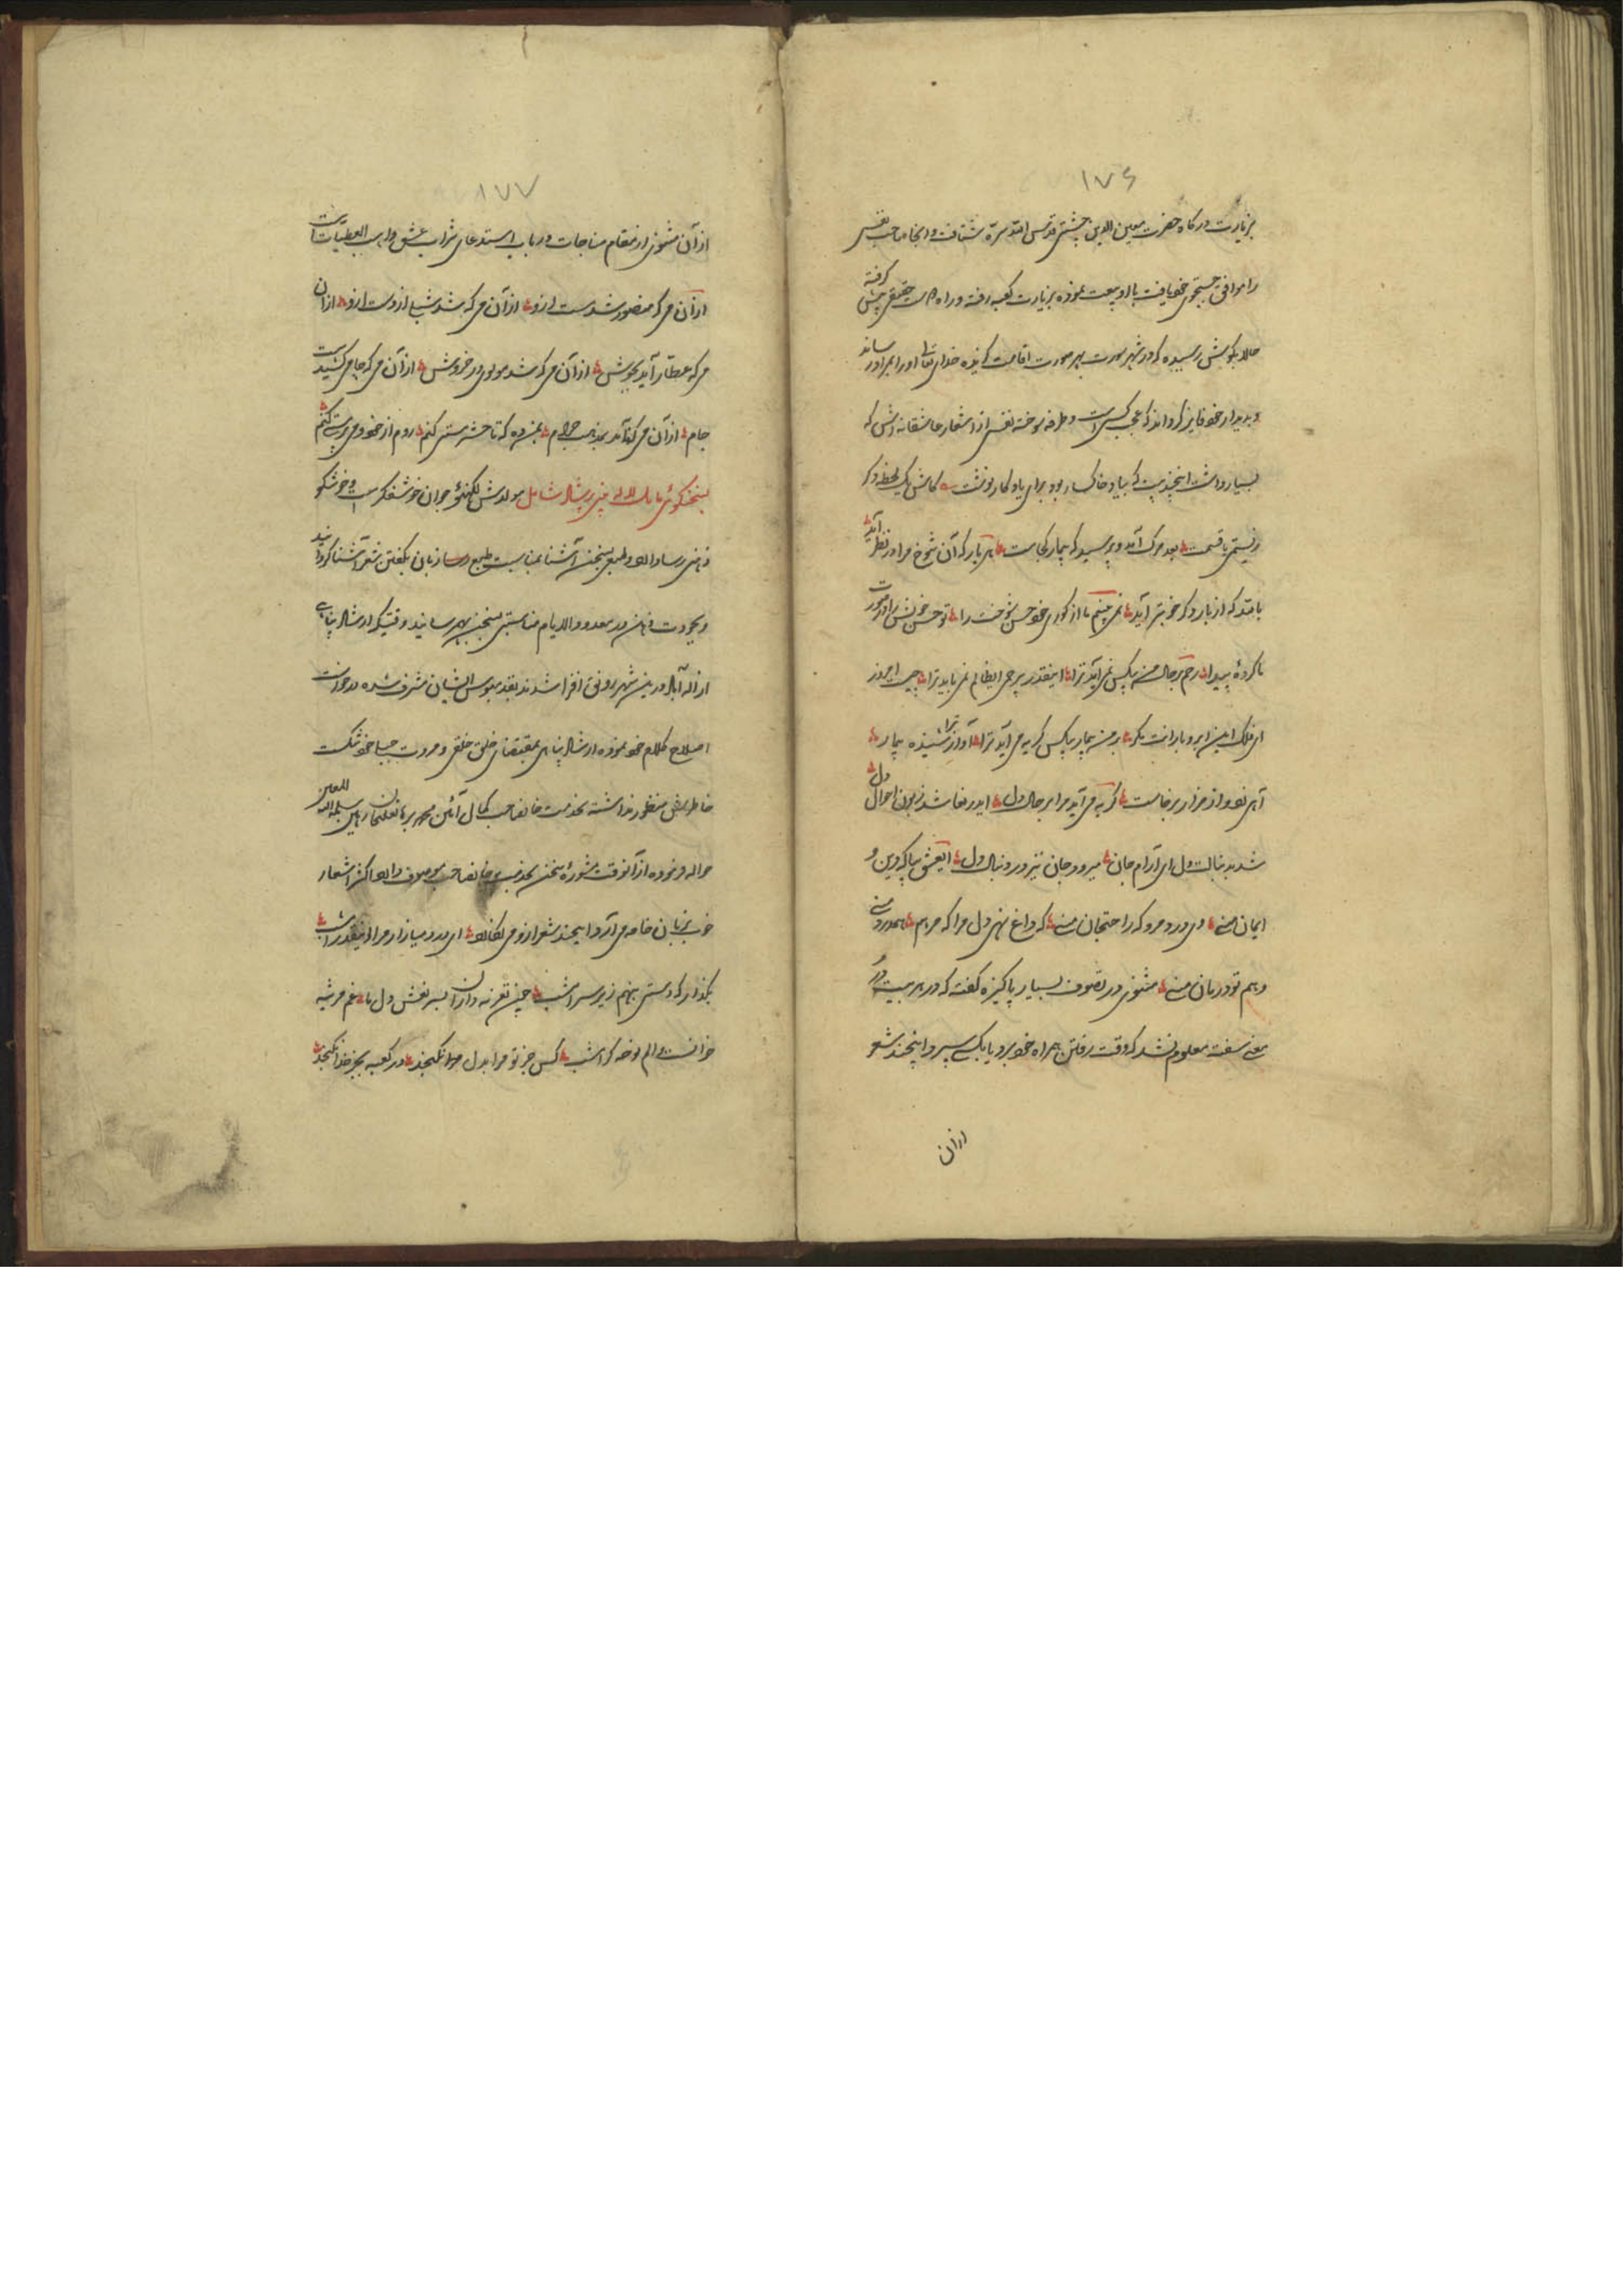 ۱۷۶
بزیارت درگاه حضرت معین الدین چشتی قدس الله سره شتافت و آنجا صاحب نفسی
را موافق جستجوی خود یافت با او بیعت نموده بزیارت کعبه رفته و راه حقیقی پیش گرفته
حالا بگوش رسیده که در شهر سورت بهر صورت اقامت گزیده خدای تعالی او را بمراد رساند
و بدیدار خود فایز گرداند که عجب کسی است و طرفه سوخته نفسی از اشعار عاشقانه اش که
بسیار داشت اینچند بیت که بیاد خاکسار بود برای یادگار نوشت کاش یک لحظه دگر
زیستمی یا قسمت بعد مرگ آمد و پرسید که بیمار کجاست هر بار که آن شوخ مرا در نظر آید
بالله که از بار دگر خوبتر آید نمی بینیم ما از کوری خود حسن شوخت را تو حسن خویش را در صورت
ما کردهٔ پیدا رحم بر حال من بیکس نمی آید ترا اینقدر بیرحمی ای ظالم نمی باید ترا چیست امروز
ای فلک این ابر و بارانت بگو بر من بیمار بیکس گریه می آید ترا آواز ترا شنیده بیمار
آهی زد و از مزار برخاست گریه می آید مرا بر حال دل ای رفیقا شد زبون احوال دل
شد بدنبالت دل ای آرام جان میرود جان نیز در دنبال دل ای عشق بیا که دین و
ایمان منی وی درد مرو که راحت جان منی گه داغ نهی دل مرا گه مرهم هم درد منی
و هم تو درمان منی مثنوی در تصوف بسیار پاکیزه گفته که در هر بیت در
معنی سفته معلوم نشد که وقت رفتن همراه خود برد یا بکسی سپرد اینچند شعر
ازان
۱۷۷
از آن مثنوی از مقام مناجات در باب استدعای شراب عشق واهب العطیات است
از آن می که منصور شد مست ازو از آن می که شد شبلی از دست ازو از آن
می که عطار آمد بجوش از آن می که شد مولوی در خروش از آن می که جامی کشیدست
جام از آن می که نامد بمذهب حرام بمن ده که تا حشر مستی کنم روم از خود و می پرستی کنم
بسخنگوئی مایل لاله پنی پرشاد شامل مولدش لکهنؤ جوان خوشفکر است و خوشگو
ذهنی رسا دارد و طبعی بسخن آشنا بمناسبت طبع رسا زبان بگفتن شعر آشنا گردانید
و بجودت ذهن در معدود الایام مناسبتی بسخن بهم رسانید وقتیکه ارشاد پناهی
از اله آباد درین شهر رونق افزا شدند بقدمبوس ایشان مشرف شده درخواست
اصلاح کلام خود نموده ارشاد پناهی بمقتضای خلق و مروت جبلی خود شکست
خاطرش منظور نداشته بخدمت خانصاحب کمال آئین مهربانعلیخان رهین سلمه الله المعین
حواله فرموده از آنوقت مشورهٔ سخن بخدمت خانصاحب موصوف دارد اکثر اشعار
خوب بزبان خامه می آرد اینچند شعر ازو می نگارد ای درد میازار مرا اینقدر امشب
بگذار که دستی بنهم زیر سر امشب چون تعزیه داران بسر نعش دل ما غم مرثیه
خوانست و الم نوحه گر امشب کس جز تو مرا بدل نگنجد در کعبه بجز خدا نگنجد